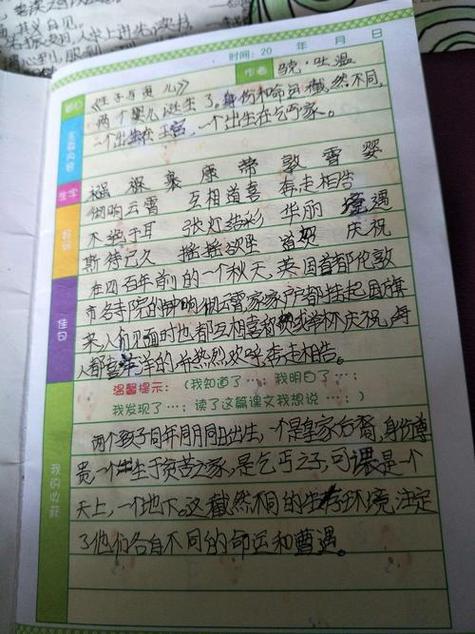 时间：20 年 月 日
作者 骁·吐温
两个婴儿诞生了。身份和命运截然不同,
一个出生在王宫，一个出生在乞丐家。
主要内容
生字
襁 褓 裹 康 带 敦 雪 婴
好词
彻响云霄 互相道喜 奔走相告
不绝于耳 张灯结彩 华丽 遭遇
期待已久 摇摇欲坠 道贺 庆祝
佳句
在四百年前的一个秋天,英国首都伦敦
市各寺院的钟响彻云霄家家户户都挂起国旗
来,人们见面时也都互相喜和或举杯庆祝,
人都喜洋洋的 热烈欢呼奔走相告。
温馨提示：（我知道了…；我明白了…；
我发现了…；读了这篇课文我想说…；）
我的收获
两个孩子同年同月同日出生，一个是皇家后裔,身份尊
贵,一个生于贫苦之家,是乞丐之子,可谓是一个
天上,一个地下。这截然不同的生存环境,注定
了他们各自不同的命运和遭遇。